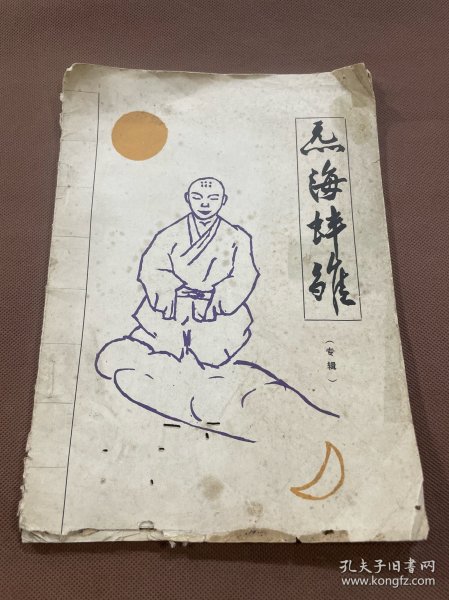 炁海蚌雏
（专辑）
孔夫子旧书网
www.kongfz.com